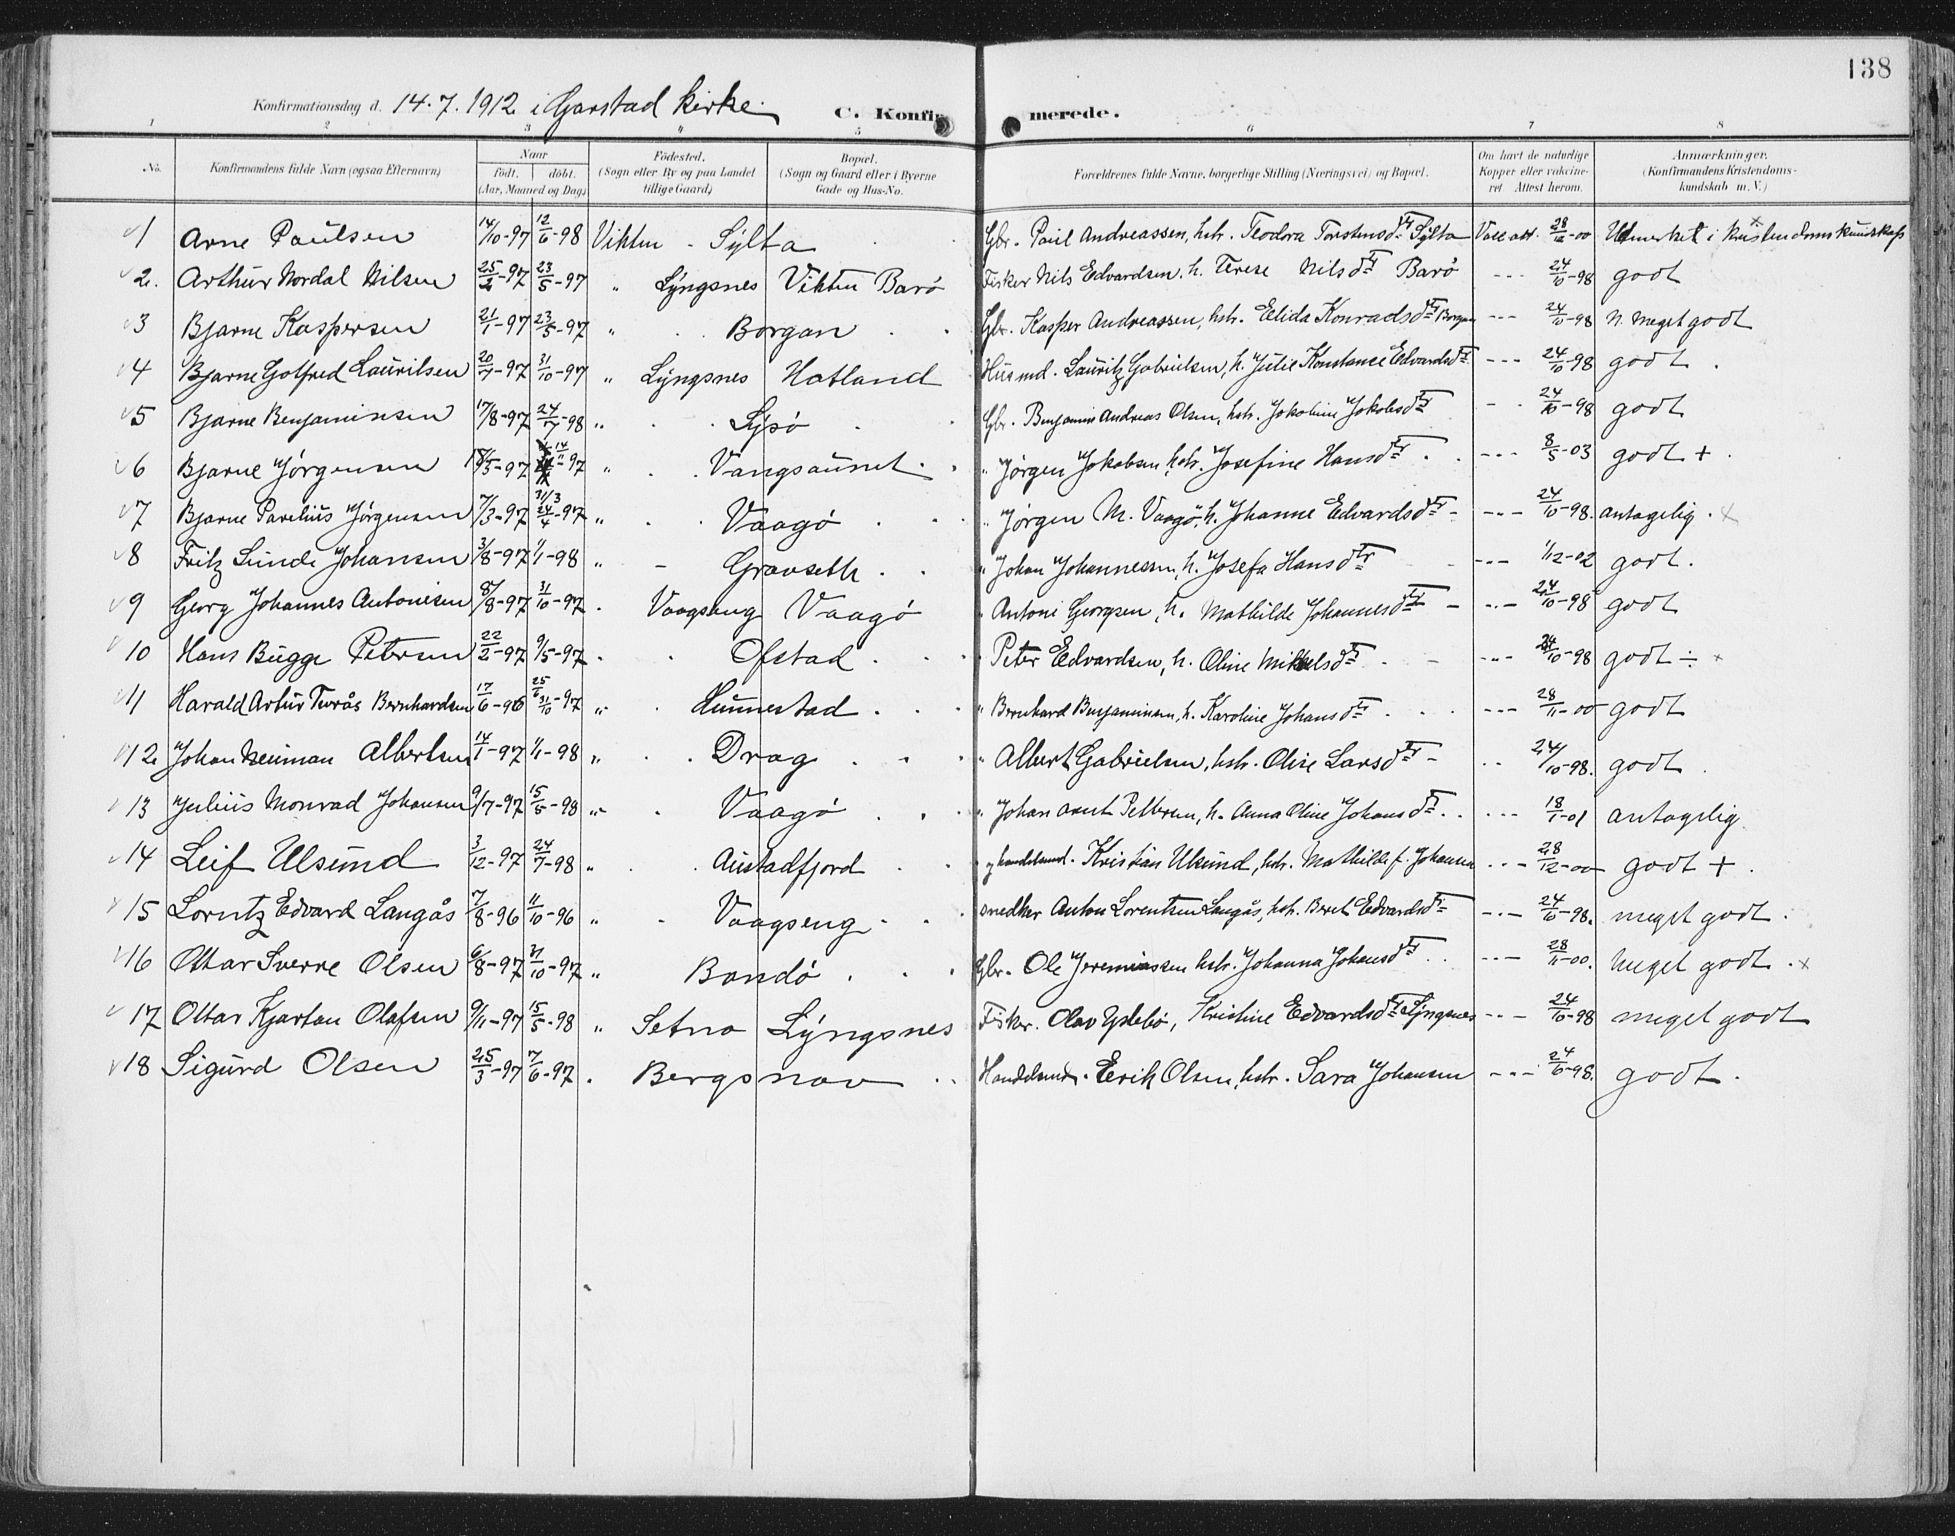 138
Konfirmationsdag d. 14.7.1912 i Garstad kirke.
C. Konfirmerede.
1 2 3 4 5 6 7 8
No. Konfirmandens fulde Navn (ogsaa Efternavn) Naar födt. döbt. (Aar, Maaned og Dag) Födested. (Sogn eller By og paa Landet tillige Gaard) Bopæl. (Sogn og Gaard eller i Byerne Gade og Hus-No. Forældrenes fulde Navne, borgerlige Stilling (Næringsvei) og Bopæl. Om havt de naturlige Kopper eller vakcineret. Attest herom. Anmærkninger. (Konfirmandens Kristendomskundskab m. V.)
1 Arne Paulsen 14/10-97 12/6-98 Vikten - Sylta Gbr. Paul Andreassen, hstr. Teodora Torstensdtr Sylta Vacc att. 28/12-00 Utmerket i kristendomskundskap
2. Arthur Nordal Nilsen 25/2-97 23/5-97 " Lyngsnes Vikten Barö Fisker Nils Edvardsen, h. Terese Nilsdtr Barö --- 24/10-98 godt
3 Bjarne Kaspersen 21/1-97 23/5-97 " Borgan Gbr. Kasper Andreassen, hstr. Elida Konradsdtr Borgan --- 24/10-98 n. meget godt
4 Bjarne Gotfred Lauritsen 20/7-97 31/10-97 " Lyngsnes Hatland Husmd. Lauritz Gabrielsen, h. Julie Konstanse Edvardsdtr --- 24/10-98 godt
5 Bjarne Benjaminsen 17/8-97 24/7-98 " Lysö Gbr. Benjamin Andreas Olsen, hstr. Jakobine Jakobsdtr - 24/10-98 godt
6 Bjarne Jörgensen 18/5-97 14/11-97 " Vangsaunet " Jörgen Jakobsen, hstr. Josefine Hansdtr --- 8/5-03 godt +
7 Bjarne Parelius Jörgensen 7/3-97 24/4-97 " Vaagö " Jörgen M. Vaagö, h. Johanne Edvardsdtr --- 24/10-98. antagelig. x
8 Fritz Sunde Johansen 3/8-97 1/1-98 " - Gravseth " Johan Johannessen, h. Josefa Hansdtr --- 1/12-02 godt.
9 Georg Johannes Antonisen 8/8-97 31/10-97 . Vaagseng Vaagö " Antoni Georgsen, h. Mathilde Johannesdtr --- 24/10-98 godt
10 Hans Bugge Petersen 22/2-97 9/5-97 . Ofstad " Peter Edvardsen, h. Oline Mikkelsdtr --- 24/10-98 godt ÷ x
11 Harald Artur Turås Bernhardsen 17/6-96 31/10-97 " Hunnestad " Bernhard Benjaminsen, h. Karoline Johansdtr --- 28/11-00 godt
12 Johan Neuman Albertsen 14/1-97 1/1-98 " Drag " Albert Gabrielsen, hstr. Olise Larsdtr - 24/10-98. godt
13 Julius Monrad Johansen 9/7-97 15/5-98 " Vaagö " Johan Arnt Pettersen, h. Anna Oline Johansdtr --- 18/1-01 antagelig
14 Leif Ulsund 3/12-97 24/7-98 " Austadfjord Kristian Ulsund, hstr. Mathilde f. Johansen --- 28/12-00 godt +
15 Lorntz Edvard Langås 7/8-96 11/10-96 " Vaagseng snedker Anton Lorentsen Langås, hstr. Beret Edvardsdtr --- 24/10-98. meget godt.
16 Ottar Sverre Olsen 6/8-97 31/10-97 " Bondö Gbr. Ole Jeremiassen hstr. Johanna Johansdtr --- 28/11-00. meget godt. x
17 Ottar Kjartan Olafsen 9/11-97 15/5-98 " Setnö Lyngsnes Fisker. Olav Yslebö, Kristine Edvardsdtr Lyngsnes --- 24/10-98 meget godt
18 Sigurd Olsen 25/3-97 7/6-97 . Bergsnov Handelsmd. Erik Olsen, hstr. Sara Johansen --- 24/6-98. godt.